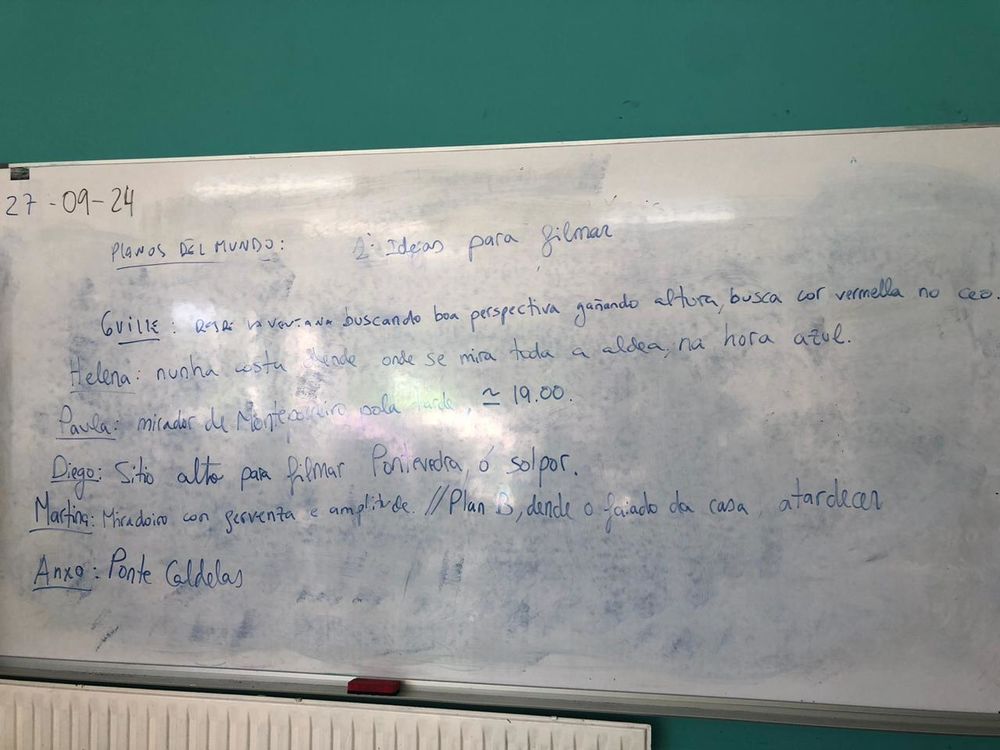 27-09-24
PLANOS DEL MUNDO: Ideas para filmar
Guille: DESDE LA VENTANA buscando boa perspectiva gañando altura, busca cor vermella no ceo.
Helena: nunha costa dende onde se mira toda a aldea, na hora azul.
Paula: mirador de pola tarde, ≃ 19.00.
Diego: Sitio alto para filmar Pontevedra, ó solpor.
Martina: Miradoiro con fervenza e amplitude. // Plan B, dende o faiado da casa, atardecer
Anxo: Ponte Caldelas